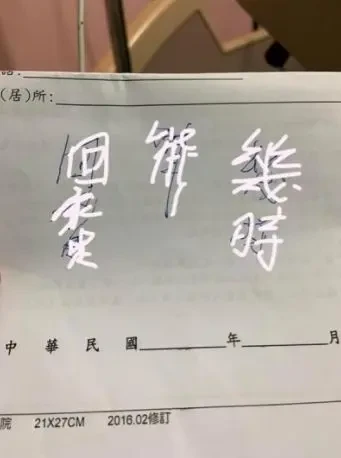 (居)所:
幾時
能
回家
中華民國 年 月
院 21X27CM 2016.02修訂